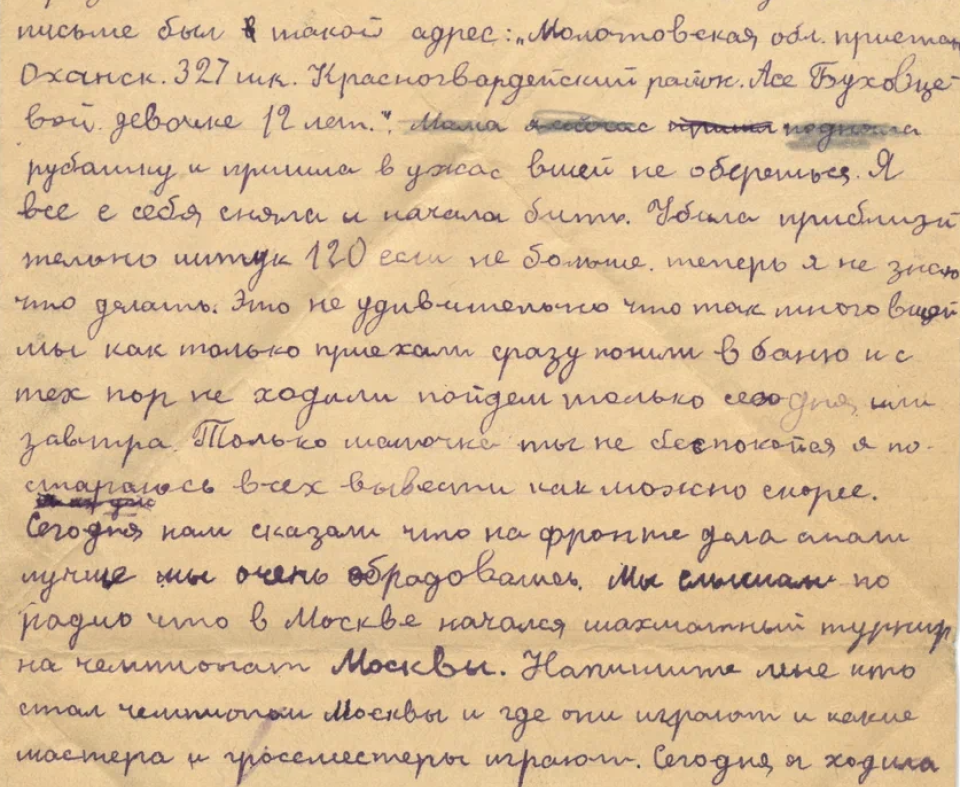 письме был такой адрес: „Молотовская обл. пристань
Оханск. 327 шк. Красногвардейский район. Асе Буховце
вой. девочке 12 лет.". Мама я сейчас пришла подняла
рубашку и пришла в ужас вшей не оберешься. Я
все с себя сняла и начала бить. Убила приблизи
тельно штук 120 если не больше. теперь я не знаю
что делать. Это не удивительно что так много вшей
мы как только приехали сразу пошли в баню и с
тех пор не ходили пойдем только сегодня, или
завтра. Только мамочка ты не беспокойся я по-
стараюсь всех вывести как можно скорее.
Сегодня нам сказали что на фронте дела стали
лучше мы очень обрадовались. Мы слышали по
радио что в Москве начался шахматный турнир
на чемпионат Москвы. Напишите мне кто
стал чемпионом Москвы и где они играют и какие
мастера и гроссмейстеры играют. Сегодня я ходила